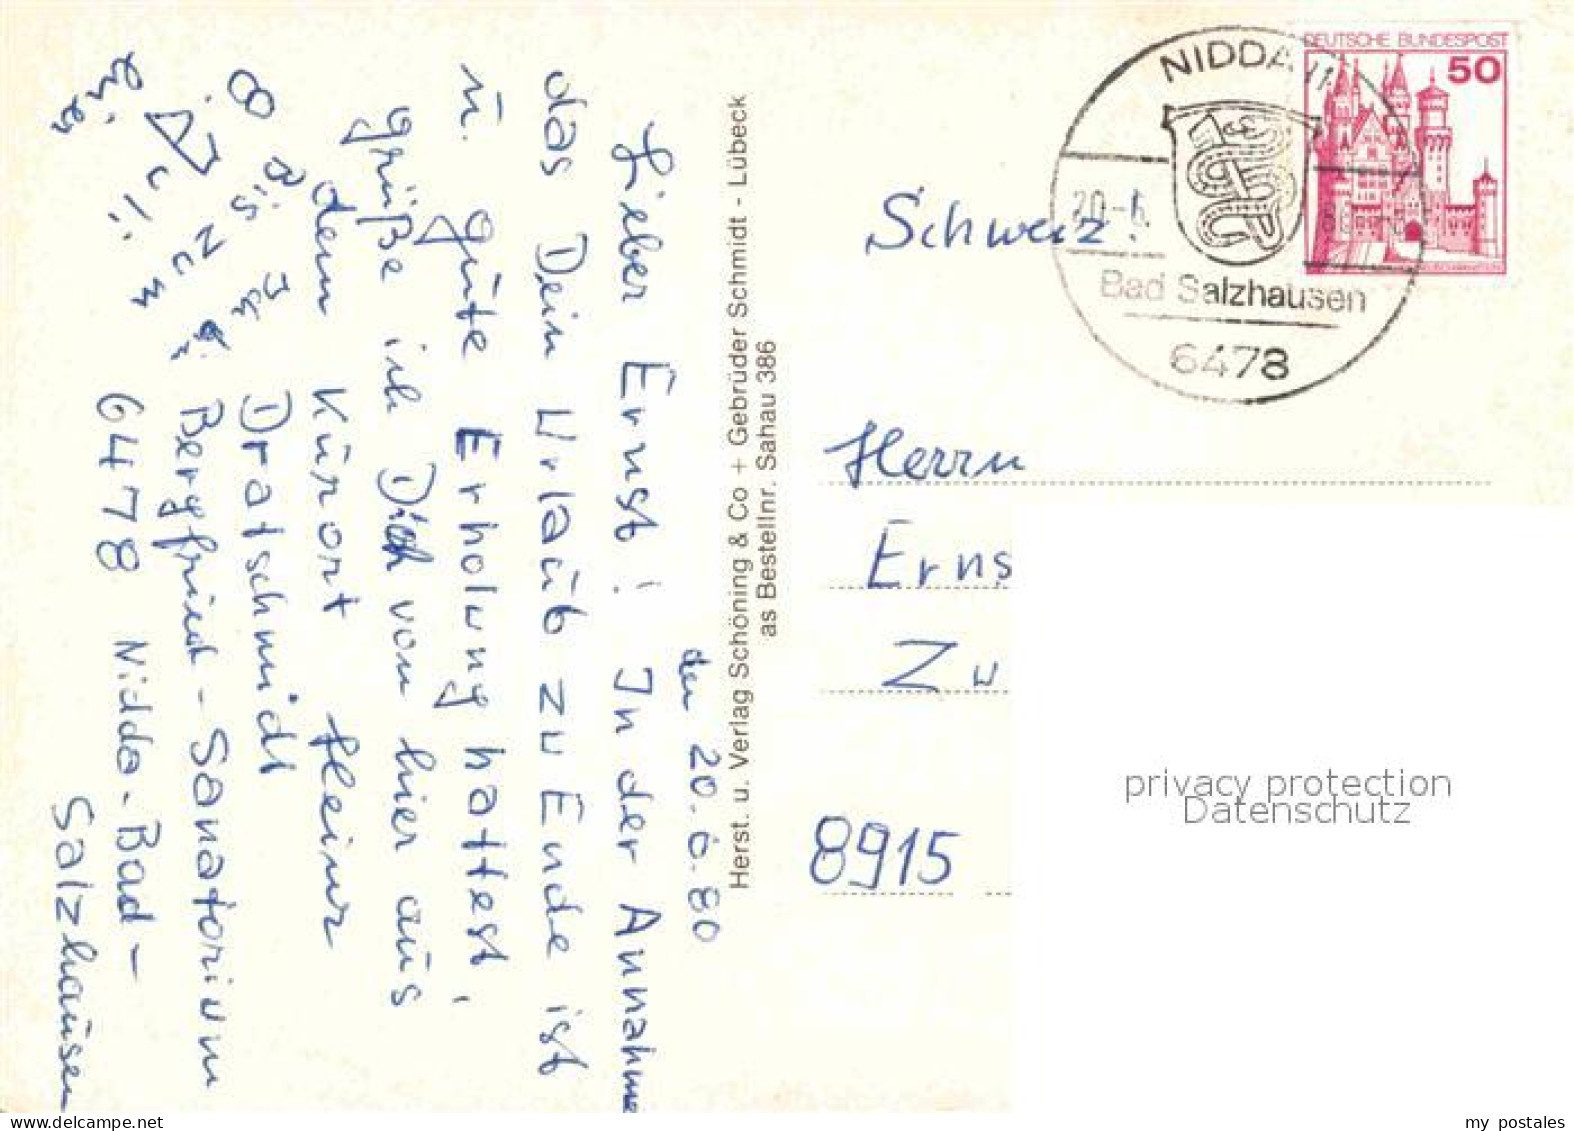 den 20.6.80
Lieber Ernst! In der Annahme
das Dein Urlaub zu Ende ist
u. gute Erholung hattest,
grüße ich Dich vom hier aus
dem Kurort
Dratschmidt
Bergfried-Sanatorium
6478 Nidda-Bad-
Salzhausen
Bis zum
Ich
hier
Herst. u. Verlag Schöning & Co + Gebrüder Schmidt - Lübeck
as Bestellnr. Sahau 386
DEUTSCHE BUNDESPOST
50
NIDDA
20.-6.
Bad Salzhausen
6478
Schweiz!
Herrn
Erns
Zu
8915
privacy protection
Datenschutz
delcampe.net
my postales